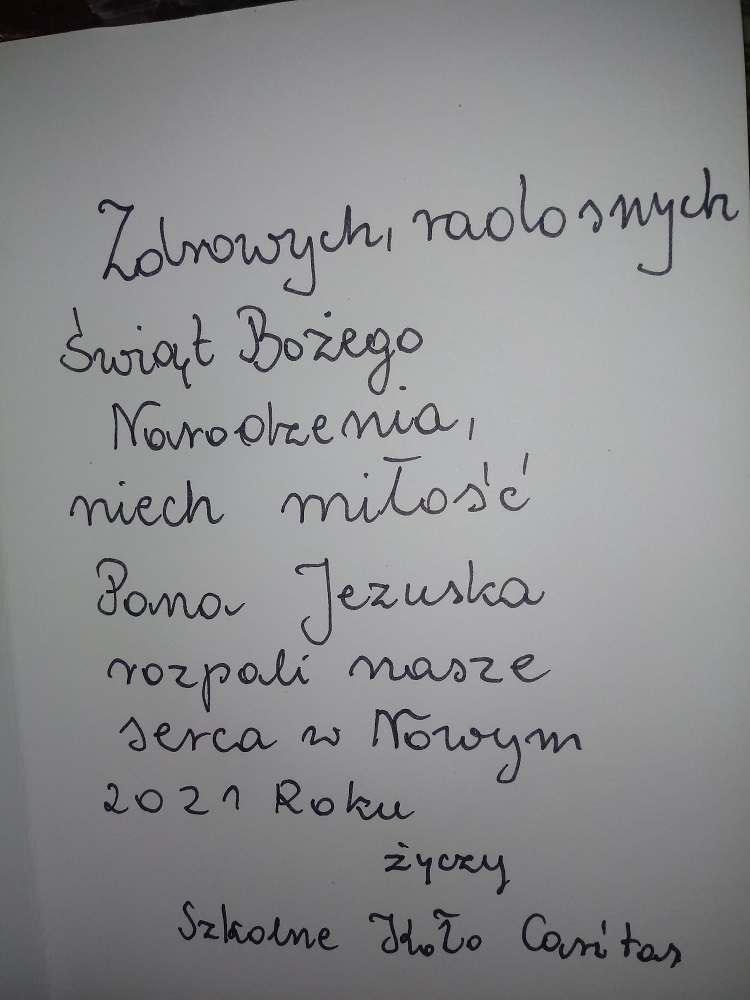 Zdrowych, radosnych
świąt Bożego
Narodzenia,
niech miłość
Pana Jezuska
rozpali nasze
serca w Nowym
2021 Roku
życzy
Szkolne Koło Caritas